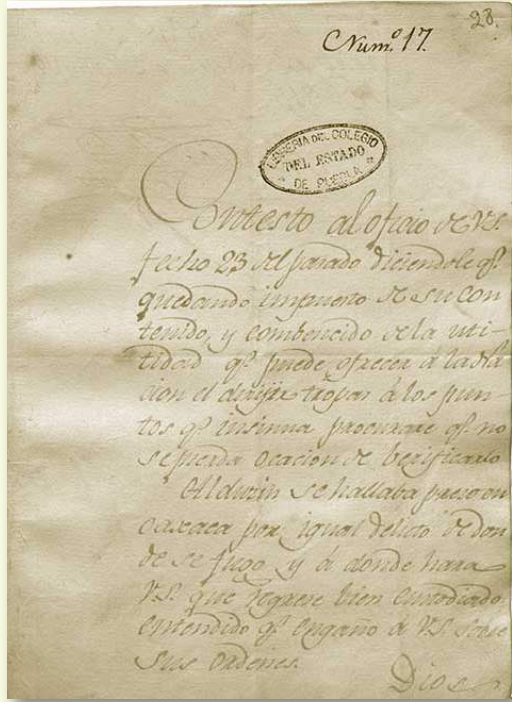 28.
Num.º 17.
LIBRERIA DEL COLEGIO
DEL ESTADO
DE PUEBLA
Contesto al oficio de V.S.
fecho 23 del pasado diciendole q.e
quedando impuesto de su con
tenido, y combencido de la uti-
lidad q.e puede ofrecer á la Na
cion el dirijir tropas á los pun-
tos q.e insinua procurare q.e no
se pierda ocacion de berificarlo
Alduzin se hallaba preso en
oaxaca por igual delito de don
de se fugo y á donde hara
V.S. que regrese bien custodiado
entendido q.e engaño á V.S. sobre
sus ordenes.
Dios